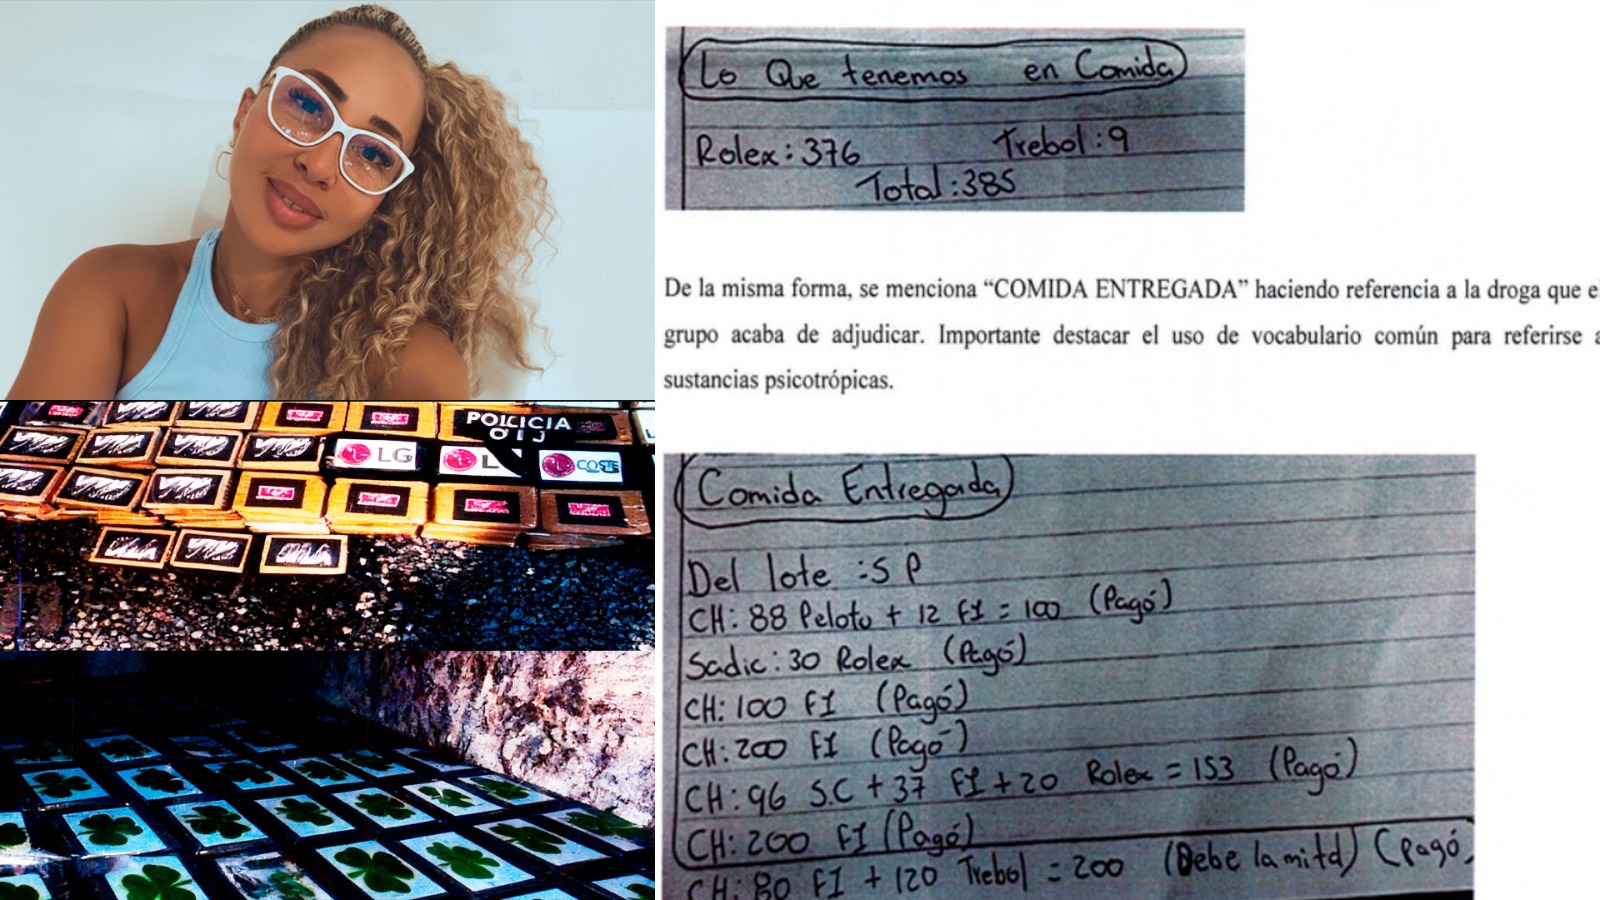 Lo Que tenemos en Comida
Rolex: 376 Trebol: 9
Total: 385
De la misma forma, se menciona “COMIDA ENTREGADA” haciendo referencia a la droga que el
grupo acaba de adjudicar. Importante destacar el uso de vocabulario común para referirse a
sustancias psicotrópicas.
Comida Entregada
Del lote : S P
CH: 88 Pelotu + 12 F1 = 100 (Pagó)
Sadic: 30 Rolex (Pagó)
CH: 100 F1 (Pagó)
CH: 200 F1 (Pagó)
CH: 96 S.C + 37 F1 + 20 Rolex = 153 (Pagó)
CH: 200 F1 (Pagó)
CH: 80 F1 + 120 Trebol = 200 (Debe la mitd) (Pagó
POLICIA
OIJ
LG
L